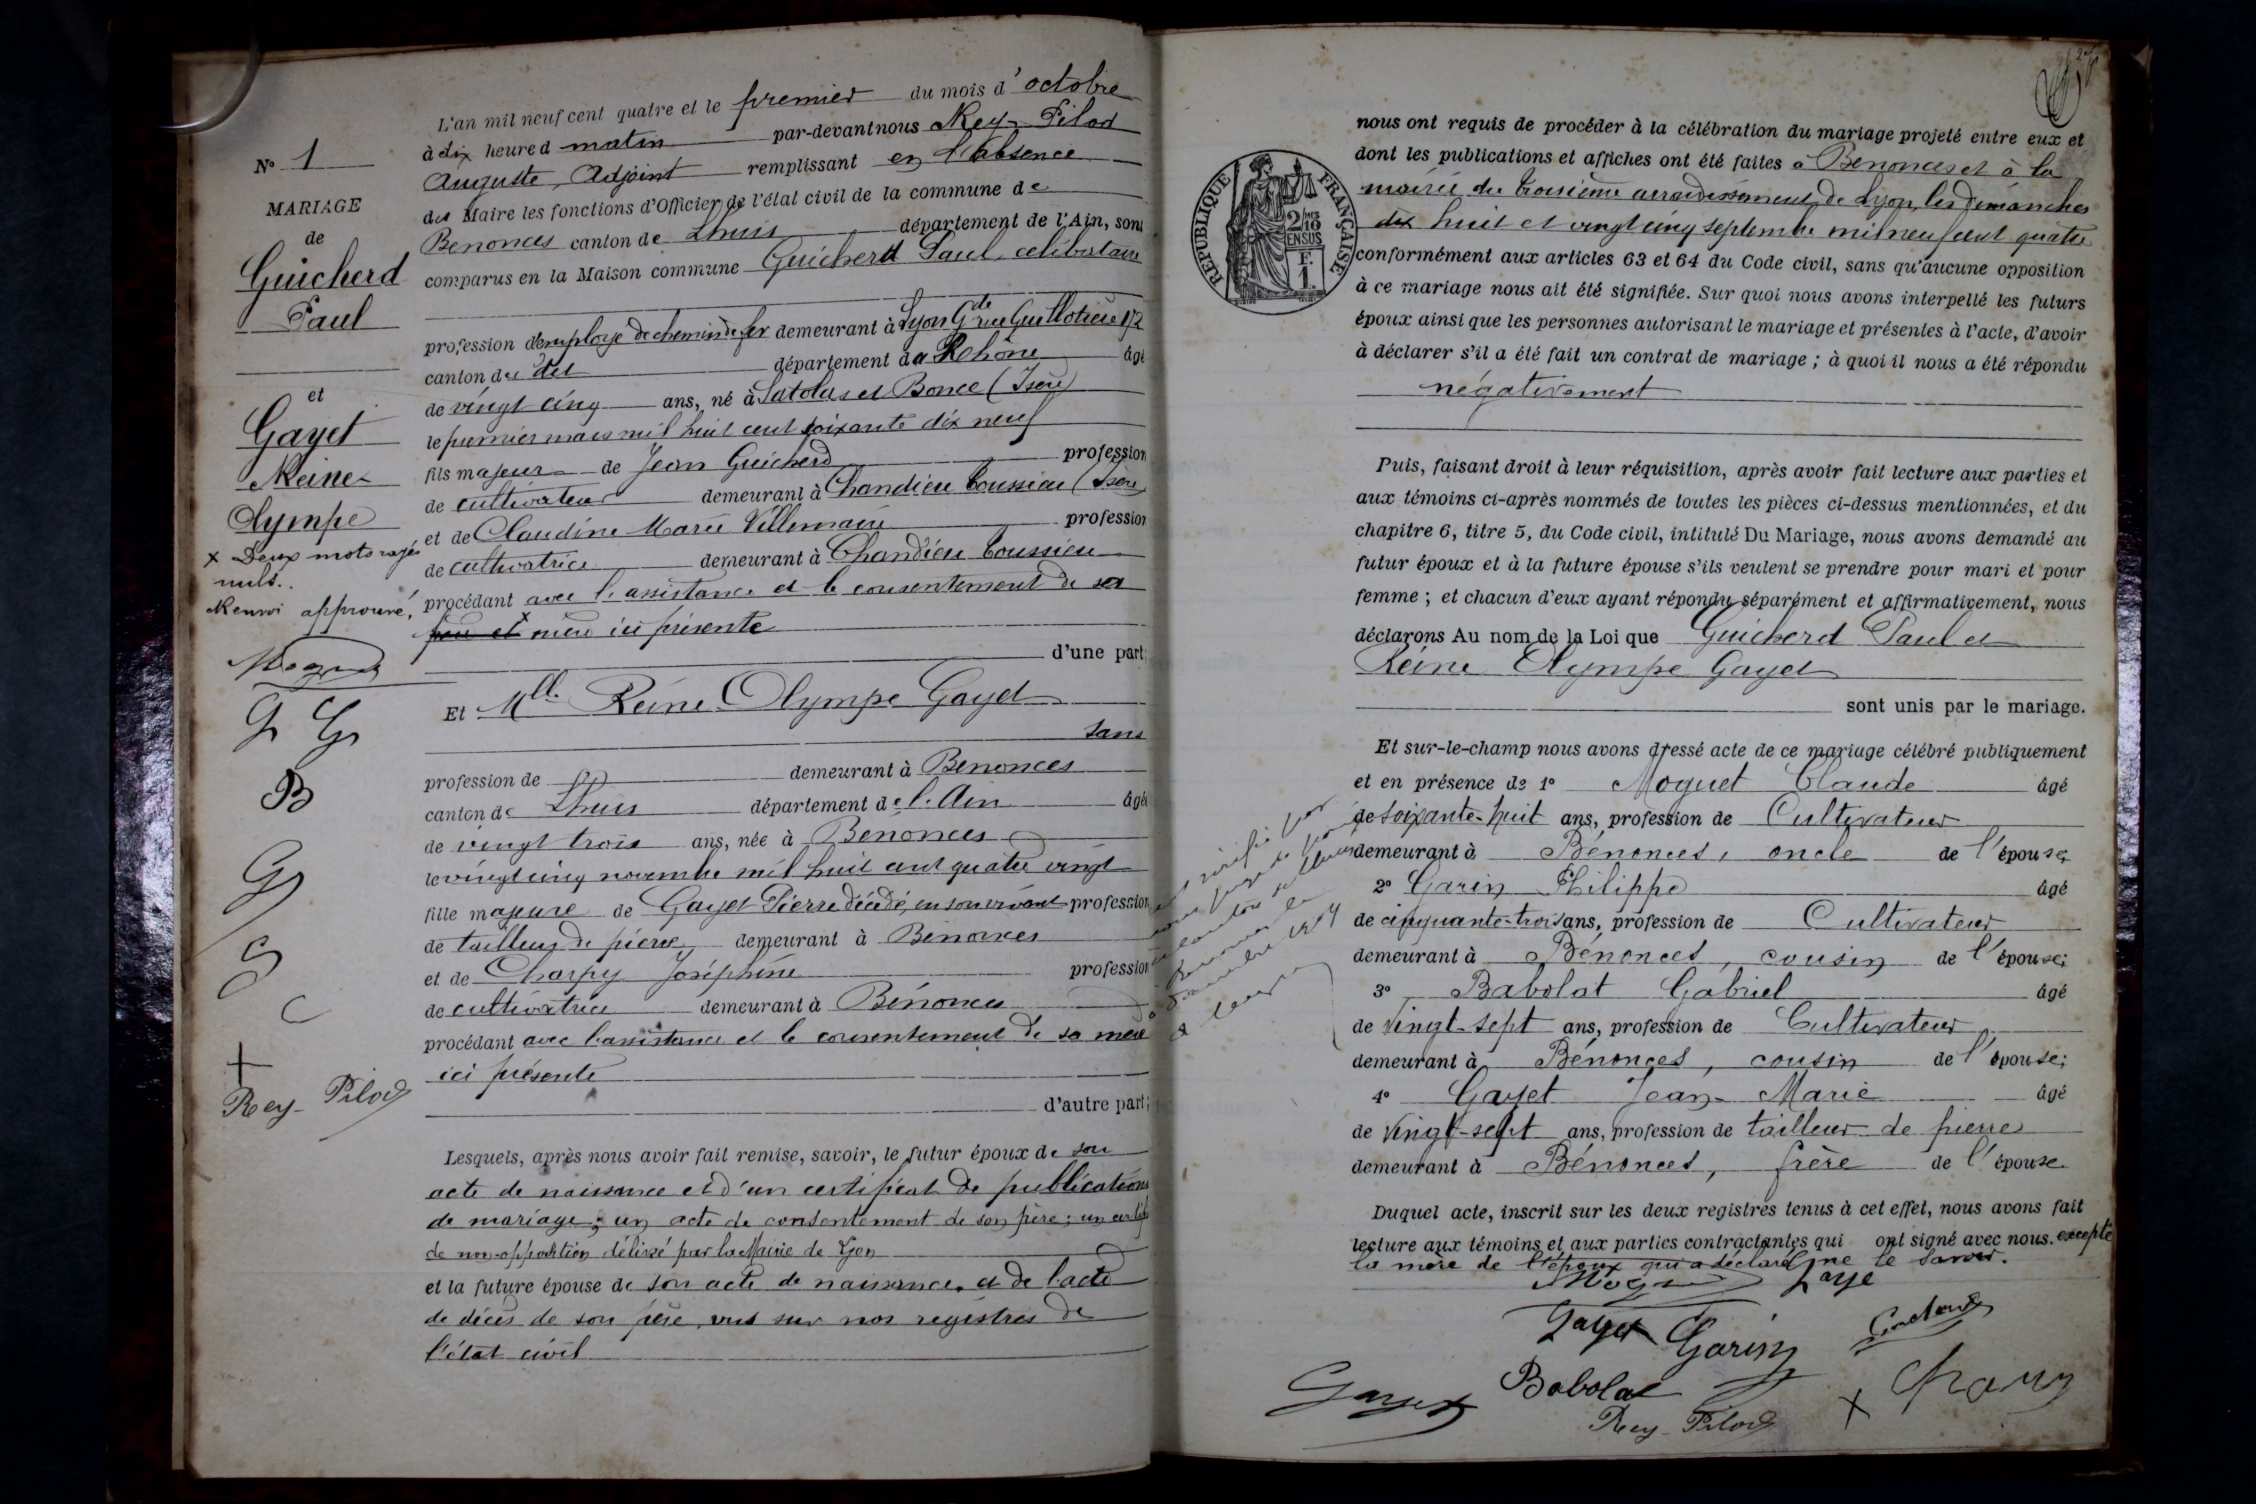 N° 1
MARIAGE
de
Guicherd
Paul
et
Gayet
Reine
Olympe
x Deux mots rayés
nuls.
Renvoi approuvé.
G G
B
G
S
C
+
Rey-Pilod
L'an mil neuf cent quatre et le premier du mois d'octobre
à dix heure d matin par-devant nous Rey-Pilod
Auguste, Adjoint remplissant en l'absence
du Maire les fonctions d'Officier de l'état civil de la commune de
Benonces canton de Lhuis département de l'Ain, sont
comparus en la Maison commune Guicherd Paul, célibataire
profession d'employé de chemin de fer demeurant à Lyon Gde rue Guillotière 172
canton du dit département du Rhône âgé
de vingt cinq ans, né à Satolas et Bonce (Isère)
le premier mars mil huit cent soixante dix neuf
fils majeur de Jean Guicherd profession
de cultivateur demeurant à Chandieu Toussieu (Isère)
et de Claudine Marie Villemaire profession
de cultivatrice demeurant à Chandieu Toussieu
procédant avec l'assistance et le consentement de sa
père et x mère ici présente
d'une part;
Et Mlle Reine Olympe Gayet
sans
profession de demeurant à Benonces
canton de Lhuis département de l'Ain âgée
de vingt trois ans, née à Bénonces
le vingt cinq novembre mil huit cent quatre vingt
fille majeure de Gayet Pierre décédé, en son vivant profession
de tailleur de pierre, demeurant à Benonces
et de Charpy Joséphine profession
de cultivatrice demeurant à Bénonces
procédant avec l'assistance et le consentement de sa mère
ici présente
d'autre part;
Lesquels, après nous avoir fait remise, savoir, le futur époux de son
acte de naissance et d'un certificat de publications
de mariage; un acte de consentement de son père; un certif.
de non-opposition délivré par la Mairie de Lyon
et la future épouse de son acte de naissance et de l'acte
de décès de son père, vus sur nos registres de
l'état civil
nous ont requis de procéder à la célébration du mariage projeté entre eux et
dont les publications et affiches ont été faites à Benonces et à la
mairie du troisième arrondissement de Lyon, les dimanches
dix huit et vingt cinq septembre mil neuf cent quatre
RÉPUBLIQUE FRANÇAISE
EN SUS
F.
1.
conformément aux articles 63 et 64 du Code civil, sans qu'aucune opposition
à ce mariage nous ait été signifiée. Sur quoi nous avons interpellé les futurs
époux ainsi que les personnes autorisant le mariage et présentes à l'acte, d'avoir
à déclarer s'il a été fait un contrat de mariage; à quoi il nous a été répondu
négativement
Puis, faisant droit à leur réquisition, après avoir fait lecture aux parties et
aux témoins ci-après nommés de toutes les pièces ci-dessus mentionnées, et du
chapitre 6, titre 5, du Code civil, intitulé Du Mariage, nous avons demandé au
futur époux et à la future épouse s'ils veulent se prendre pour mari et pour
femme; et chacun d'eux ayant répondu séparément et affirmativement, nous
déclarons Au nom de la Loi que Guicherd Paul et
Reine Olympe Gayet
sont unis par le mariage.
Et sur-le-champ nous avons dressé acte de ce mariage célébré publiquement
et en présence de 1° Moguet Claude âgé
de soixante-huit ans, profession de Cultivateur
demeurant à Bénonces, oncle de l'épouse;
2° Garin Philippe âgé
de cinquante-trois ans, profession de Cultivateur
demeurant à Bénonces, cousin de l'épouse;
3° Babolat Gabriel âgé
de vingt-sept ans, profession de Cultivateur
demeurant à Bénonces, cousin de l'épouse;
4° Gayet Jean-Marie âgé
de vingt-sept ans, profession de tailleur de pierre
demeurant à Bénonces, frère de l'épouse.
Duquel acte, inscrit sur les deux registres tenus à cet effet, nous avons fait
lecture aux témoins et aux parties contractantes qui ont signé avec nous. excepté
la mère de l'époux qui a déclaré ne le savoir.
Gayet Garin
Gayet Babolat
Rey-Pilod